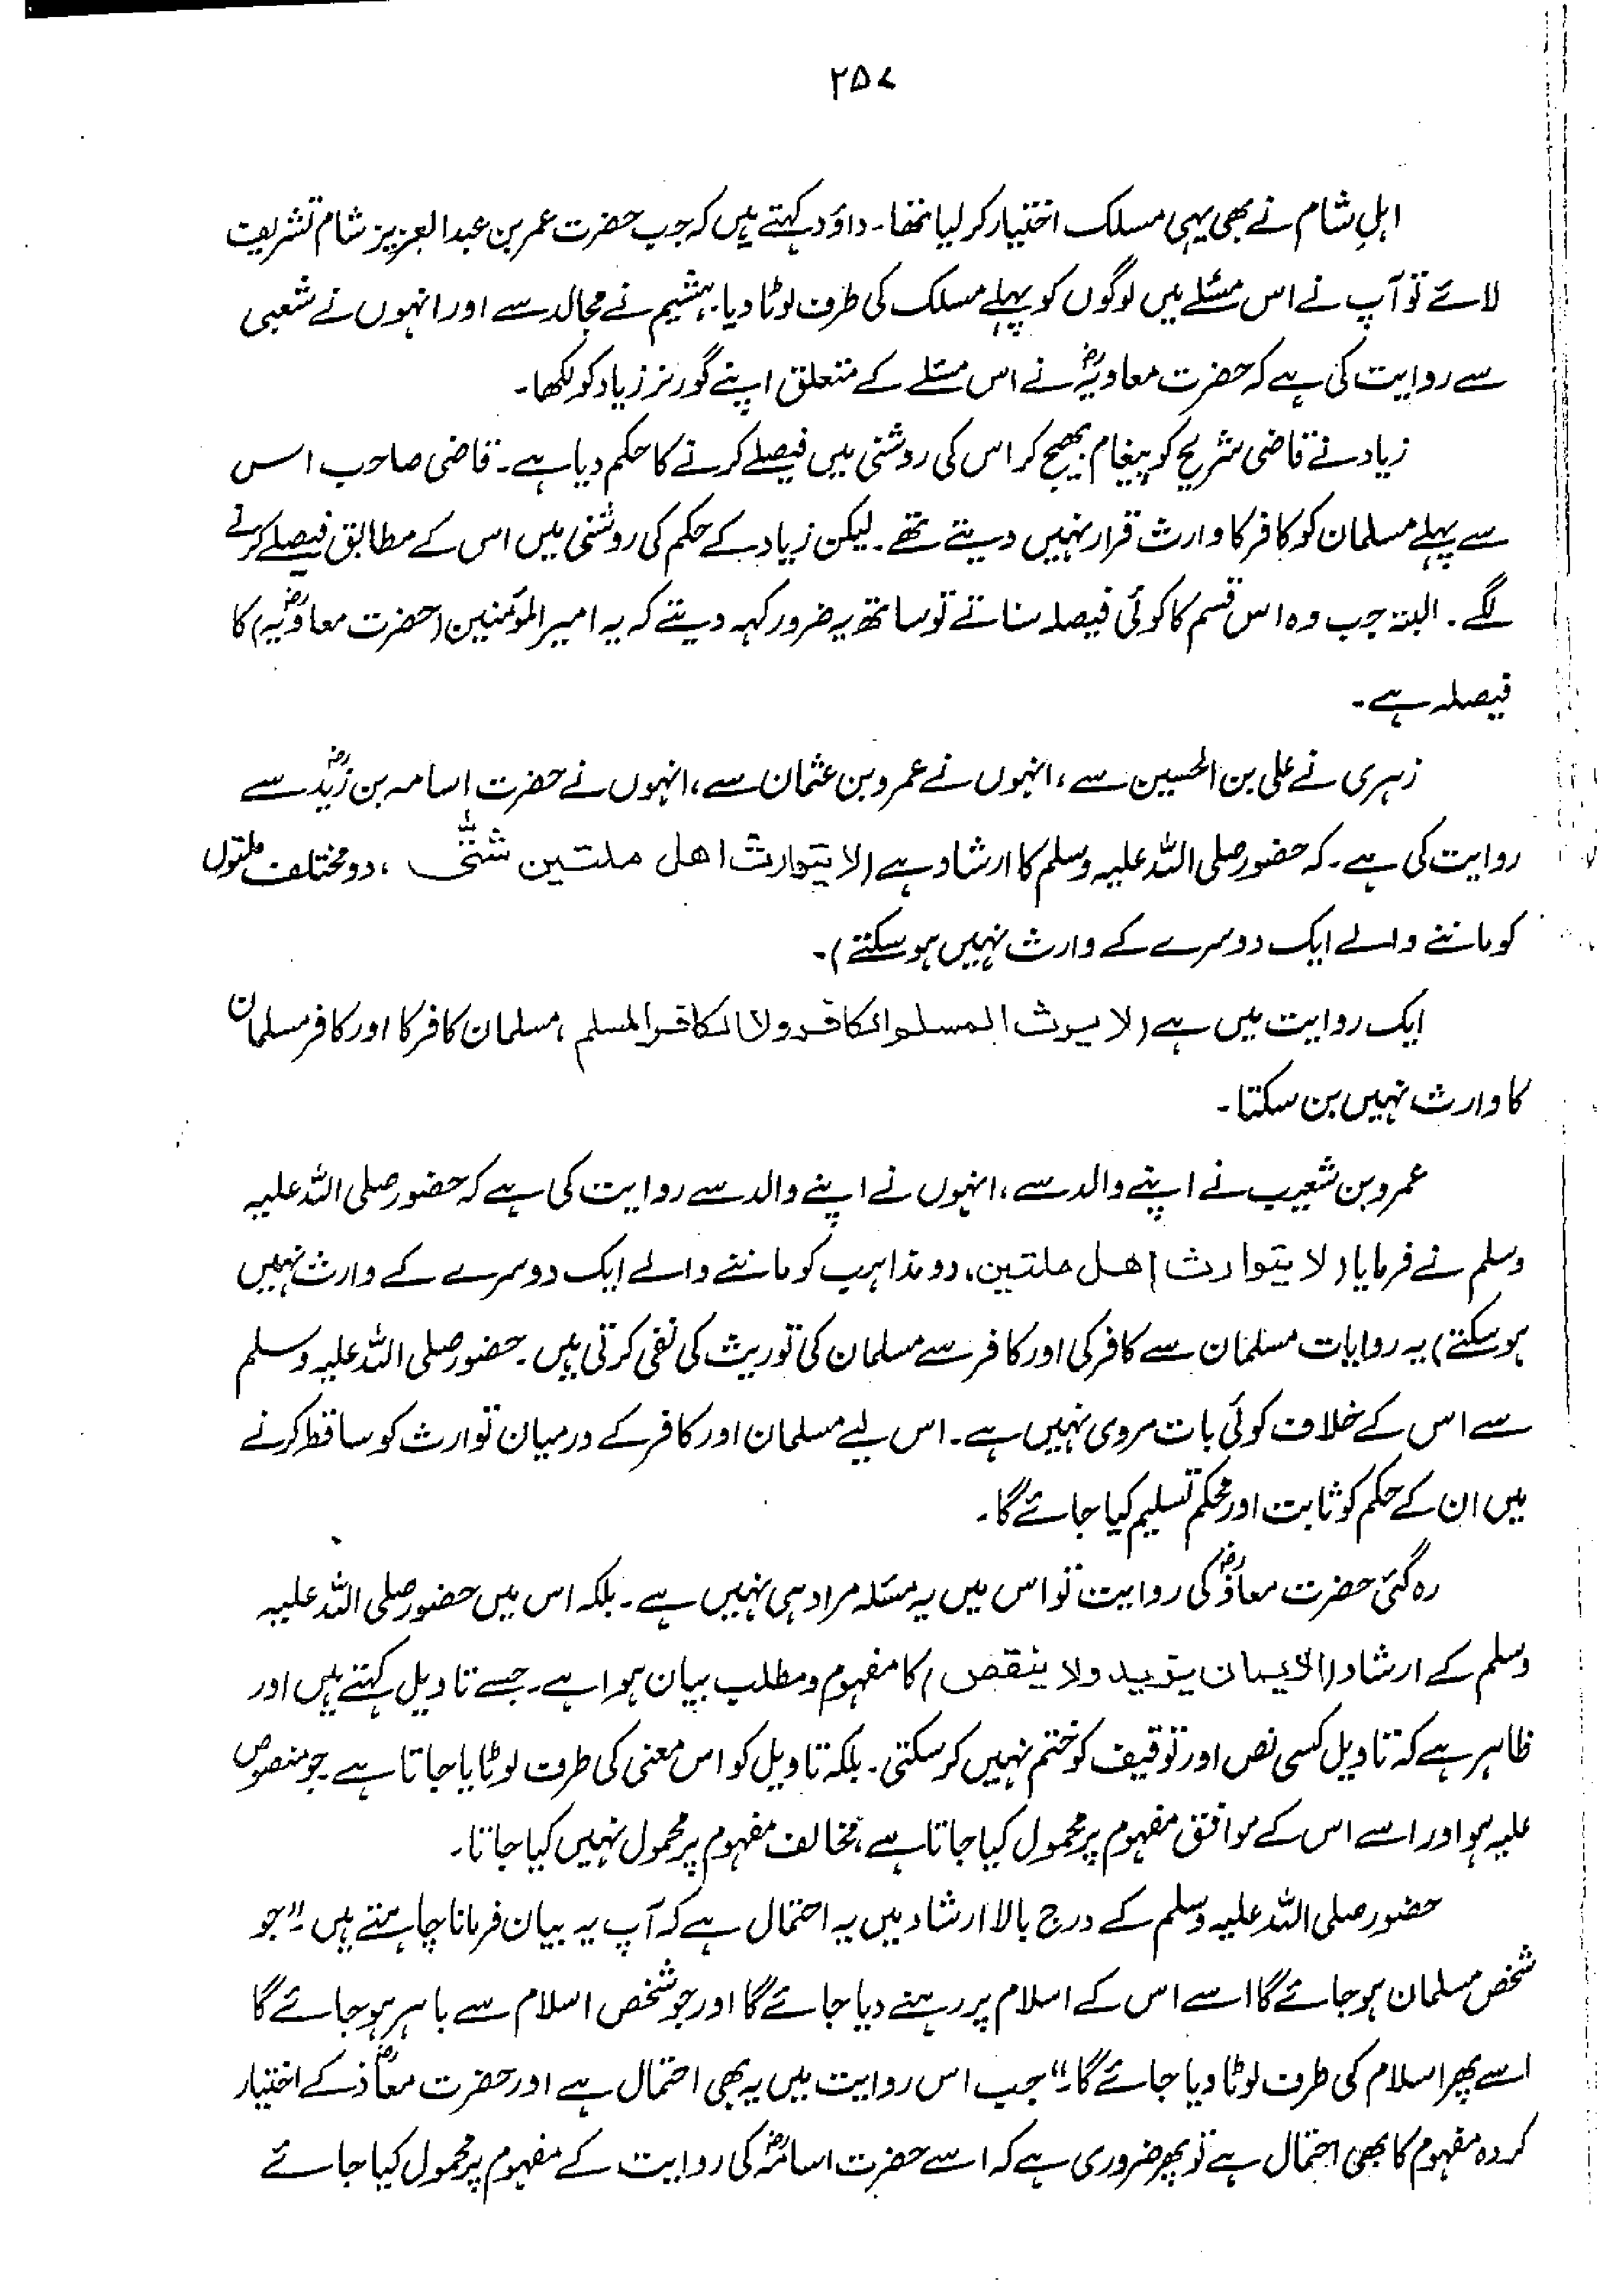 ۲۵۷
اہلِ شام نے بھی یہی مسلک اختیار کر لیا تھا۔ داؤد کہتے ہیں کہ جب حضرت عمر بن عبد العزیز شام تشریف
لائے تو آپ نے اس مسئلے میں لوگوں کو پہلے مسلک کی طرف لوٹا دیا۔ ہشیم نے مجالد سے اور انہوں نے شعبی
سے روایت کی ہے کہ حضرت معاویہؓ نے اس مسئلے کے متعلق اپنے گورنر زیاد کو لکھا۔
زیاد نے قاضی شریح کو پیغام بھیج کر اس کی روشنی میں فیصلے کرنے کا حکم دیا ہے۔ قاضی صاحب اس
سے پہلے مسلمان کو کافر کا وارث قرار نہیں دیتے تھے۔ لیکن زیاد کے حکم کی روشنی میں اس کے مطابق فیصلے کرنے
لگے۔ البتہ جب وہ اس قسم کا کوئی فیصلہ سناتے تو ساتھ یہ ضرور کہہ دیتے کہ یہ امیر المؤمنین (حضرت معاویہؓ) کا
فیصلہ ہے۔
زہری نے علی بن الحسین سے، انہوں نے عمرو بن عثمان سے، انہوں نے حضرت اسامہ بن زیدؓ سے
روایت کی ہے۔ کہ حضور صلی اللہ علیہ وسلم کا ارشاد ہے (لا یتوارث اھل ملتین شتّٰی، دو مختلف ملتوں
کو ماننے والے ایک دوسرے کے وارث نہیں ہو سکتے)۔
ایک روایت میں ہے (لا یرث المسلم الکافر ولا الکافر المسلم، مسلمان کافر کا اور کافر مسلمان
کا وارث نہیں بن سکتا۔
عمرو بن شعیب نے اپنے والد سے، انہوں نے اپنے والد سے روایت کی ہے کہ حضور صلی اللہ علیہ
وسلم نے فرمایا (لا یتوارث اھل ملتین، دو مذاہب کو ماننے والے ایک دوسرے کے وارث نہیں
ہو سکتے) یہ روایات مسلمان سے کافر کی اور کافر سے مسلمان کی توریث کی نفی کرتی ہیں۔ حضور صلی اللہ علیہ وسلم
سے اس کے خلاف کوئی بات مروی نہیں ہے۔ اس لیے مسلمان اور کافر کے درمیان توارث کو ساقط کرنے
میں ان کے حکم کو ثابت اور محکم تسلیم کیا جائے گا۔
رہ گئی حضرت معاذؓ کی روایت تو اس میں یہ مسئلہ مراد ہی نہیں ہے۔ بلکہ اس میں حضور صلی اللہ علیہ
وسلم کے ارشاد (الایمان یزید ولا ینقص) کا مفہوم و مطلب بیان ہوا ہے۔ جسے تاویل کہتے ہیں اور
ظاہر ہے کہ تاویل کسی نص اور توقیف کو ختم نہیں کر سکتی۔ بلکہ تاویل کو اس معنی کی طرف لوٹایا جاتا ہے جو منصوص
علیہ ہو اور اسے اس کے موافق مفہوم پر محمول کیا جاتا ہے، مخالف مفہوم پر محمول نہیں کیا جاتا۔
حضور صلی اللہ علیہ وسلم کے درج بالا ارشاد میں یہ احتمال ہے کہ آپ یہ بیان فرمانا چاہتے ہیں۔ "جو
شخص مسلمان ہو جائے گا اسے اس کے اسلام پر رہنے دیا جائے گا اور جو شخص اسلام سے باہر ہو جائے گا
اسے پھر اسلام کی طرف لوٹا دیا جائے گا۔" جب اس روایت میں یہ بھی احتمال ہے اور حضرت معاذؓ کے اختیار
کردہ مفہوم کا بھی احتمال ہے تو پھر ضروری ہے کہ اسے حضرت اسامہؓ کی روایت کے مفہوم پر محمول کیا جائے